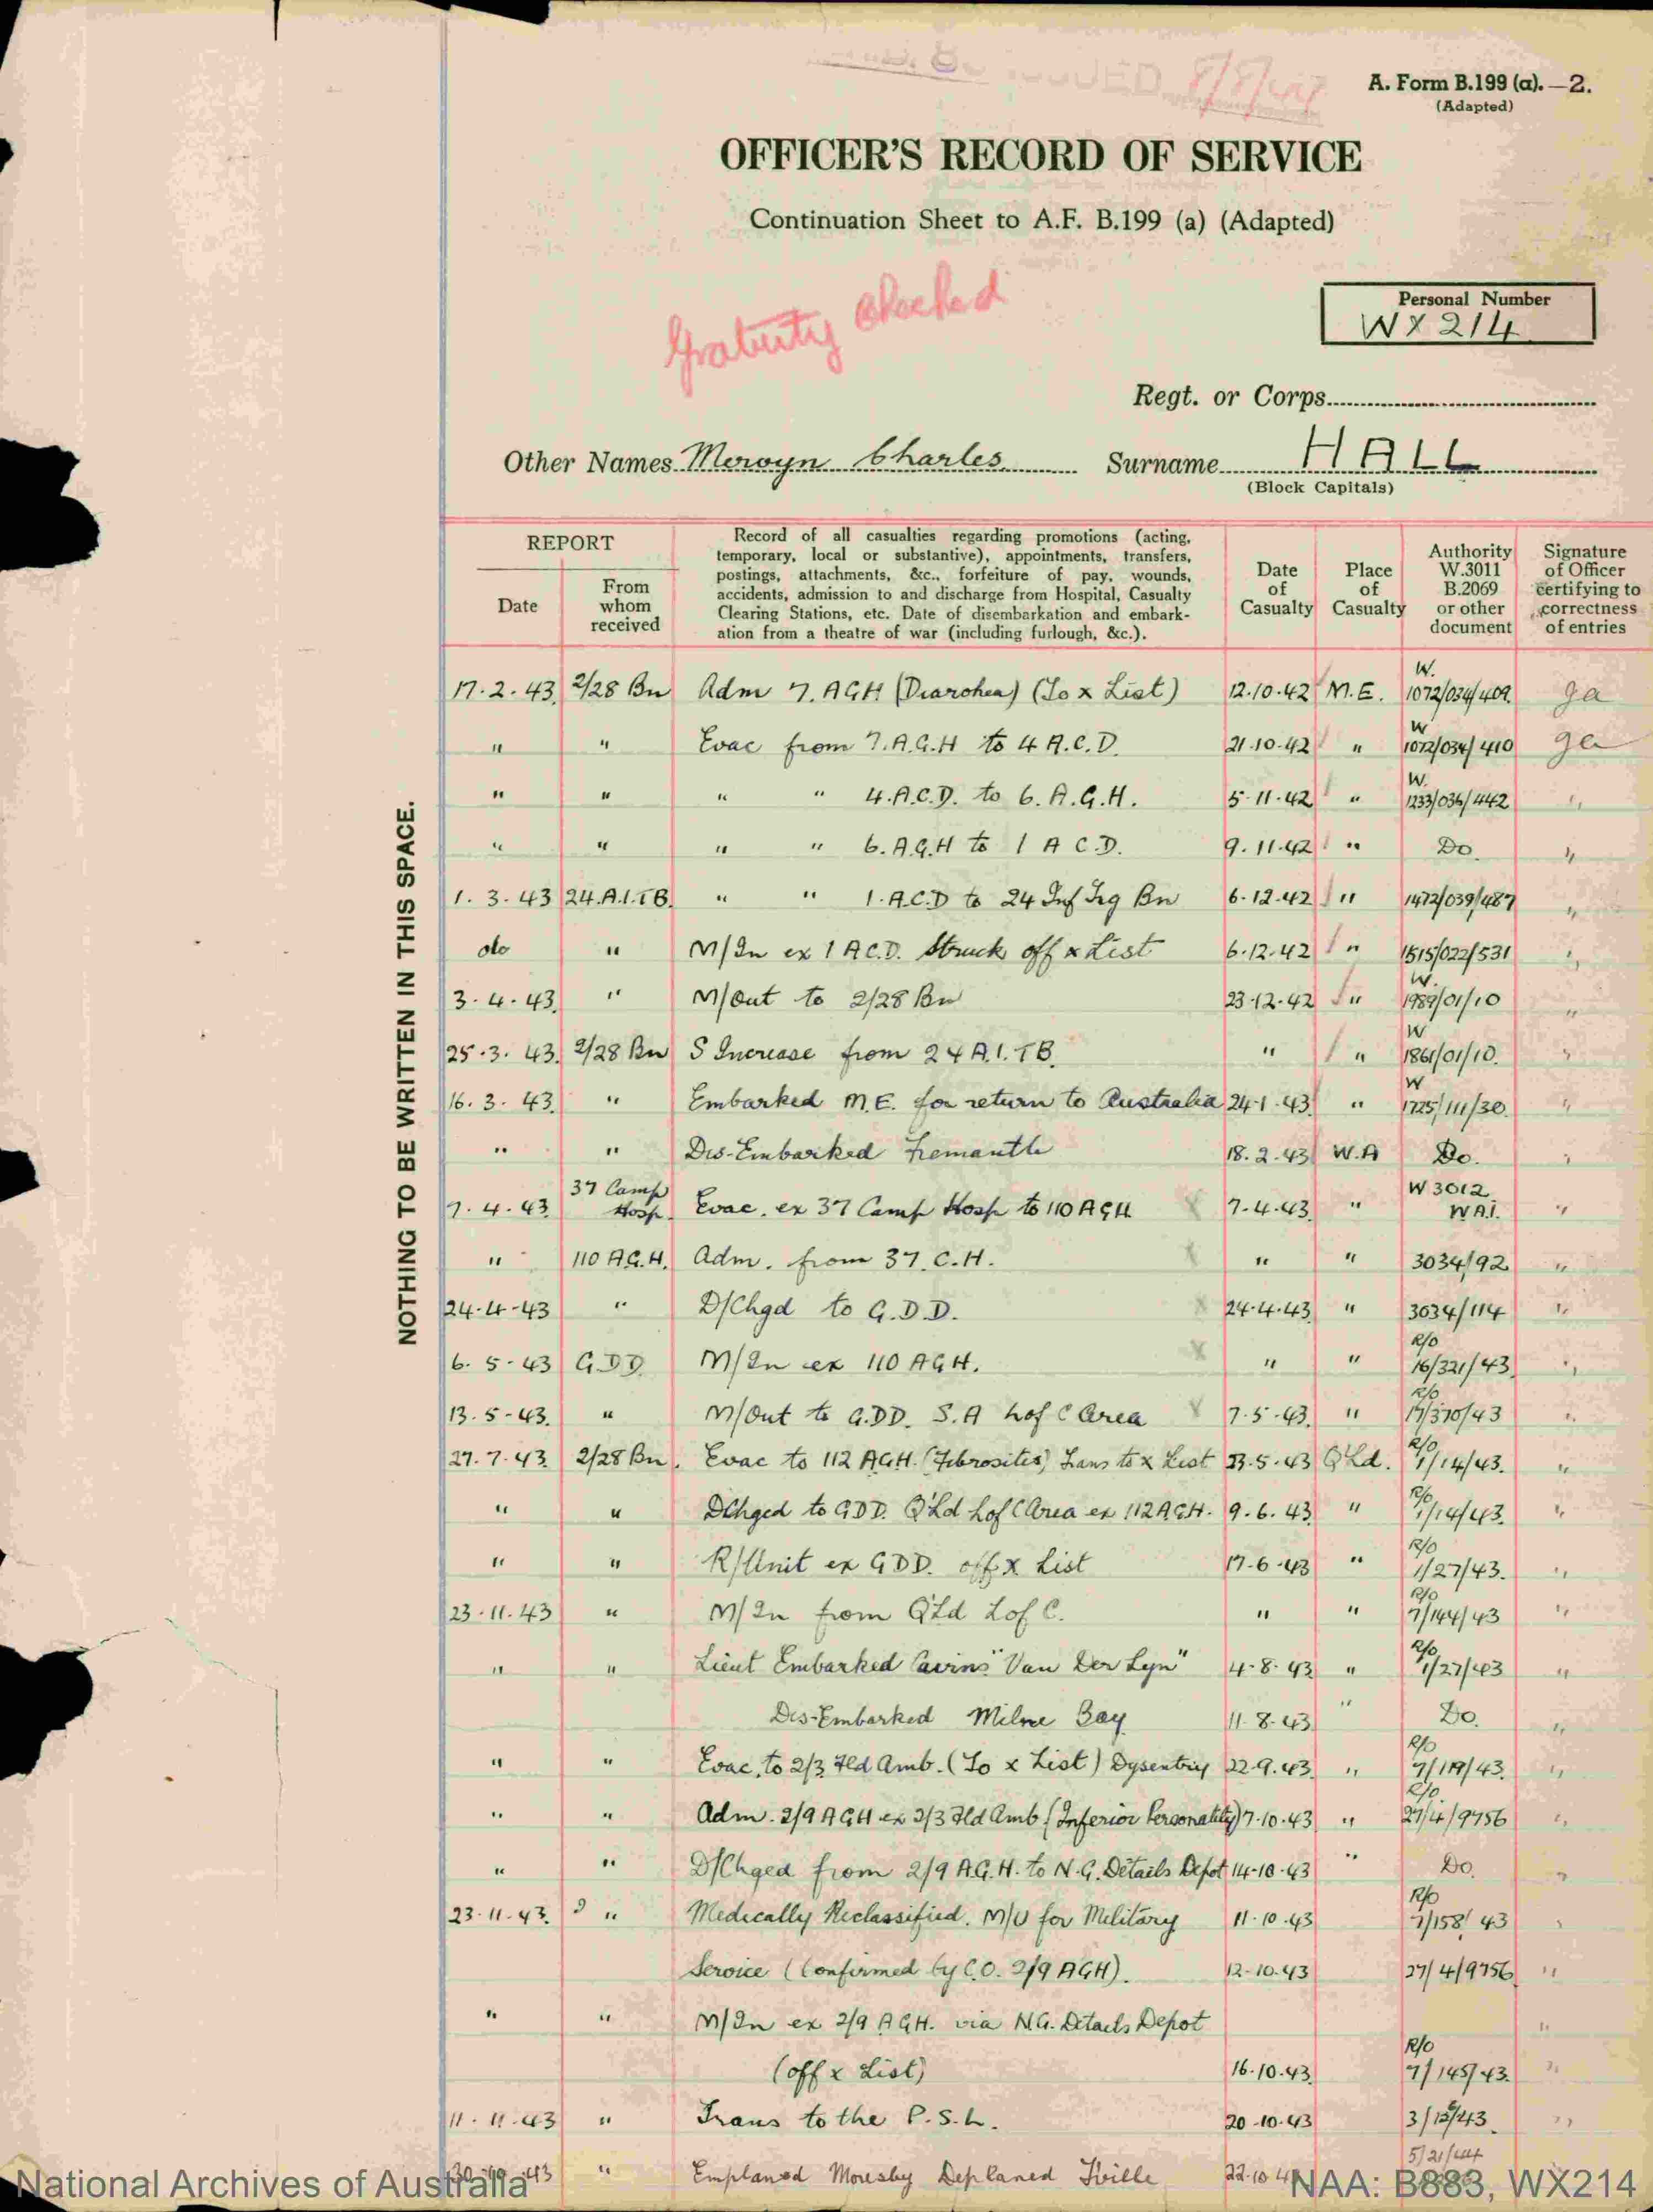 A. Form B.199 (a).—2.
(Adapted)
OFFICER'S RECORD OF SERVICE
Continuation Sheet to A.F. B.199 (a) (Adapted)
Gratuity Checked
Personal Number
WX 214
Regt. or Corps
Other Names Mervyn Charles Surname HALL
(Block Capitals)
REPORT
Date
From whom received
Record of all casualties regarding promotions (acting,
temporary, local or substantive), appointments, transfers,
postings, attachments, &c., forfeiture of pay, wounds,
accidents, admission to and discharge from Hospital, Casualty
Clearing Stations, etc. Date of disembarkation and embark-
ation from a theatre of war (including furlough, &c.).
Date of Casualty
Place of Casualty
Authority W.3011 B.2069 or other document
Signature of Officer certifying to correctness of entries
NOTHING TO BE WRITTEN IN THIS SPACE.
17.2.43 2/28 Bn Adm 7. AGH (Diarohea) (To x List) 12.10.42 M.E. W. 1072/034/409
" " Evac from 7.A.G.H to 4 A.C.D. 21.10.42 " W 1072/034/410
" " " " 4.A.C.D. to 6.A.G.H. 5.11.42 " W. 1233/036/442 "
" " " " 6.A.G.H to 1 A C.D. 9.11.42 " Do. "
1.3.43 24.A.I.TB. " " 1.A.C.D to 24 Inf Trg Bn 6.12.42 " 1472/039/487 "
do " M/In ex 1 A.C.D. Struck off x List 6.12.42 " 1515/022/531 "
3.4.43 " M/Out to 2/28 Bn 23.12.42 " W. 1989/01/10 "
25.3.43. 2/28 Bn S Increase from 24 A.I.TB. " " W 1861/01/10. "
16.3.43. " Embarked M.E. for return to Australia 24.1.43 " W 1725/111/30. "
" " Dis-Embarked Fremantle 18.2.43 W.A Do. "
7.4.43 37 Camp Hosp. Evac. ex 37 Camp Hosp to 110 AGH 7.4.43 " W 3012 WA1. "
" 110 A.G.H. Adm. from 37.C.H. " " 3034/92 "
24-4-43 " D/Chgd to G.D.D. 24.4.43 " 3034/114 "
6.5-43 G.DD. M/In ex 110 AGH. " " R/o 16/321/43 "
13.5-43. " M/Out to G.DD. S.A L of C Area 7.5.43. " R/o 17/370/43 "
27.7.43 2/28 Bn. Evac to 112 AGH. (Fibrosites) Trans to x List 23.5.43 Q'Ld. R/o 1/14/43. "
" " D/Chged to GDD. Q'Ld L of C Area ex 112 AGH. 9.6.43 " R/o 1/14/43. "
" " R/Unit ex GDD. off x List 17.6.43 " R/o 1/27/43. "
23.11.43 " M/In from Q'Ld L of C. " " R/o 7/144/43 "
" " Lieut Embarked Cairns "Van Der Lyn" 4.8.43 " R/o 1/27/43 "
Dis-Embarked Milne Bay 11.8.43 " Do. "
" " Evac. to 2/3 Fld Amb. (To x List) Dysentry 22.9.43 " R/o 7/119/43. "
" " Adm. 2/9 AGH ex 2/3 Fld Amb (Inferior Personality) 7.10.43 " R/o 27/4/9756 "
" " D/Chged from 2/9 A.G.H. to N.G. Details Depot 14-10-43 " Do. "
23.11.43. " Medically Reclassified. M/U for Military 11.10.43 R/o 7/158/43 "
Service (Confirmed by C.O. 2/9 AGH). 12-10.43 27/4/9756 "
" " M/In ex 2/9 AGH. via N.G. Details Depot "
(off x List) 16.10.43 R/o 7/145/43. "
11.11.43 " Trans to the P.S.L. 20-10.43 3/ /43. "
" Emplaned Moresby Deplaned T'ville 22.10 5/21/44
National Archives of Australia
NAA: B883, WX214